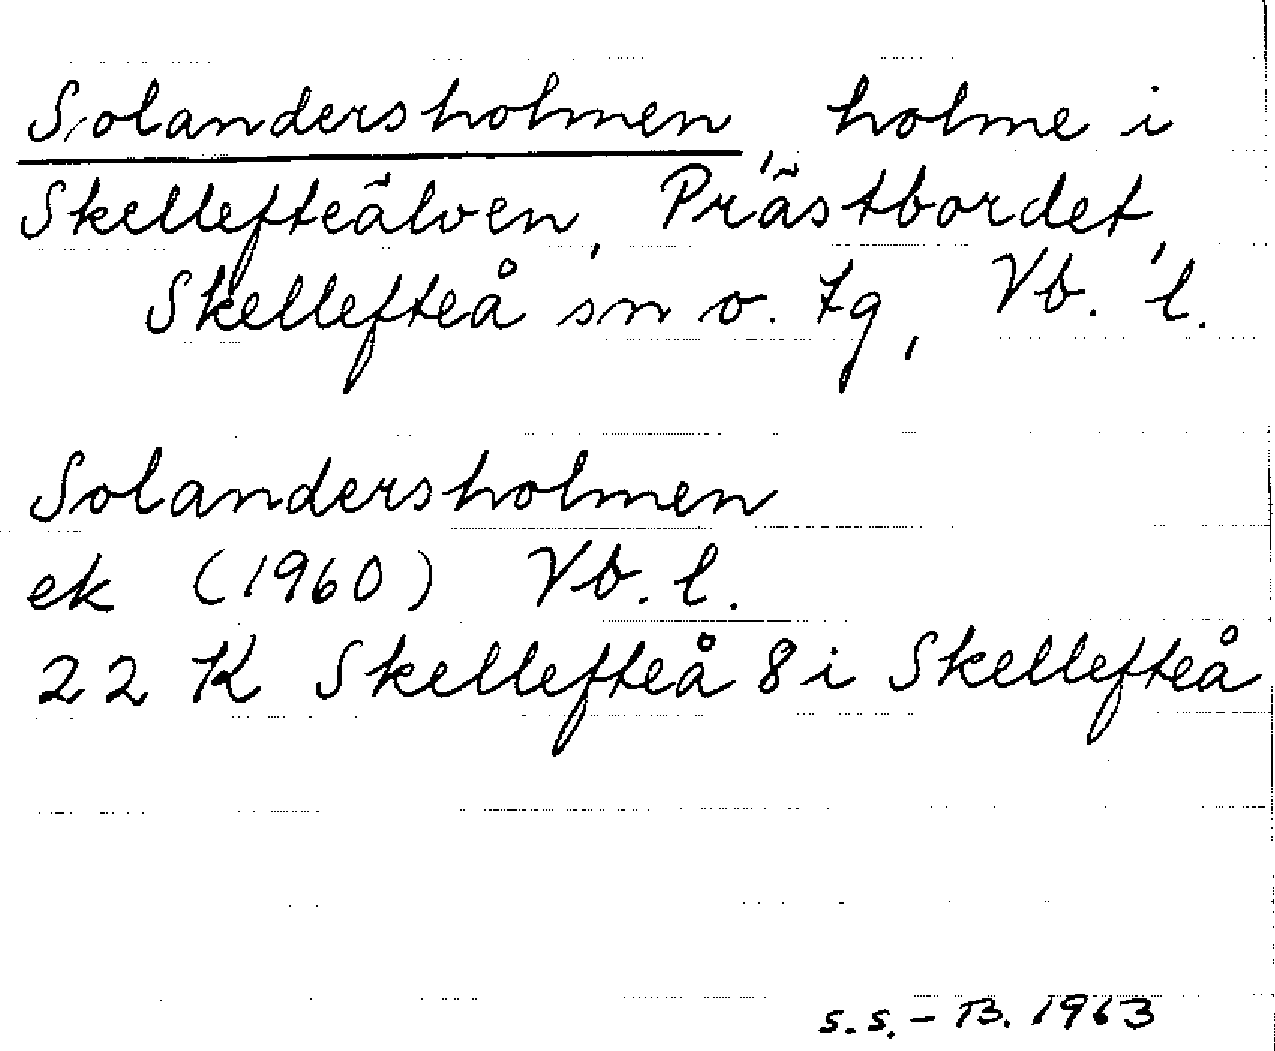 Solandersholmen, holme i
Skellefteälven, Prästbordet,
Skellefteå sn o. tg, Vb. l.
Solandersholmen
ek (1960) Vb. l.
22 K Skellefteå 8 i Skellefteå
S.S. - B. 1963